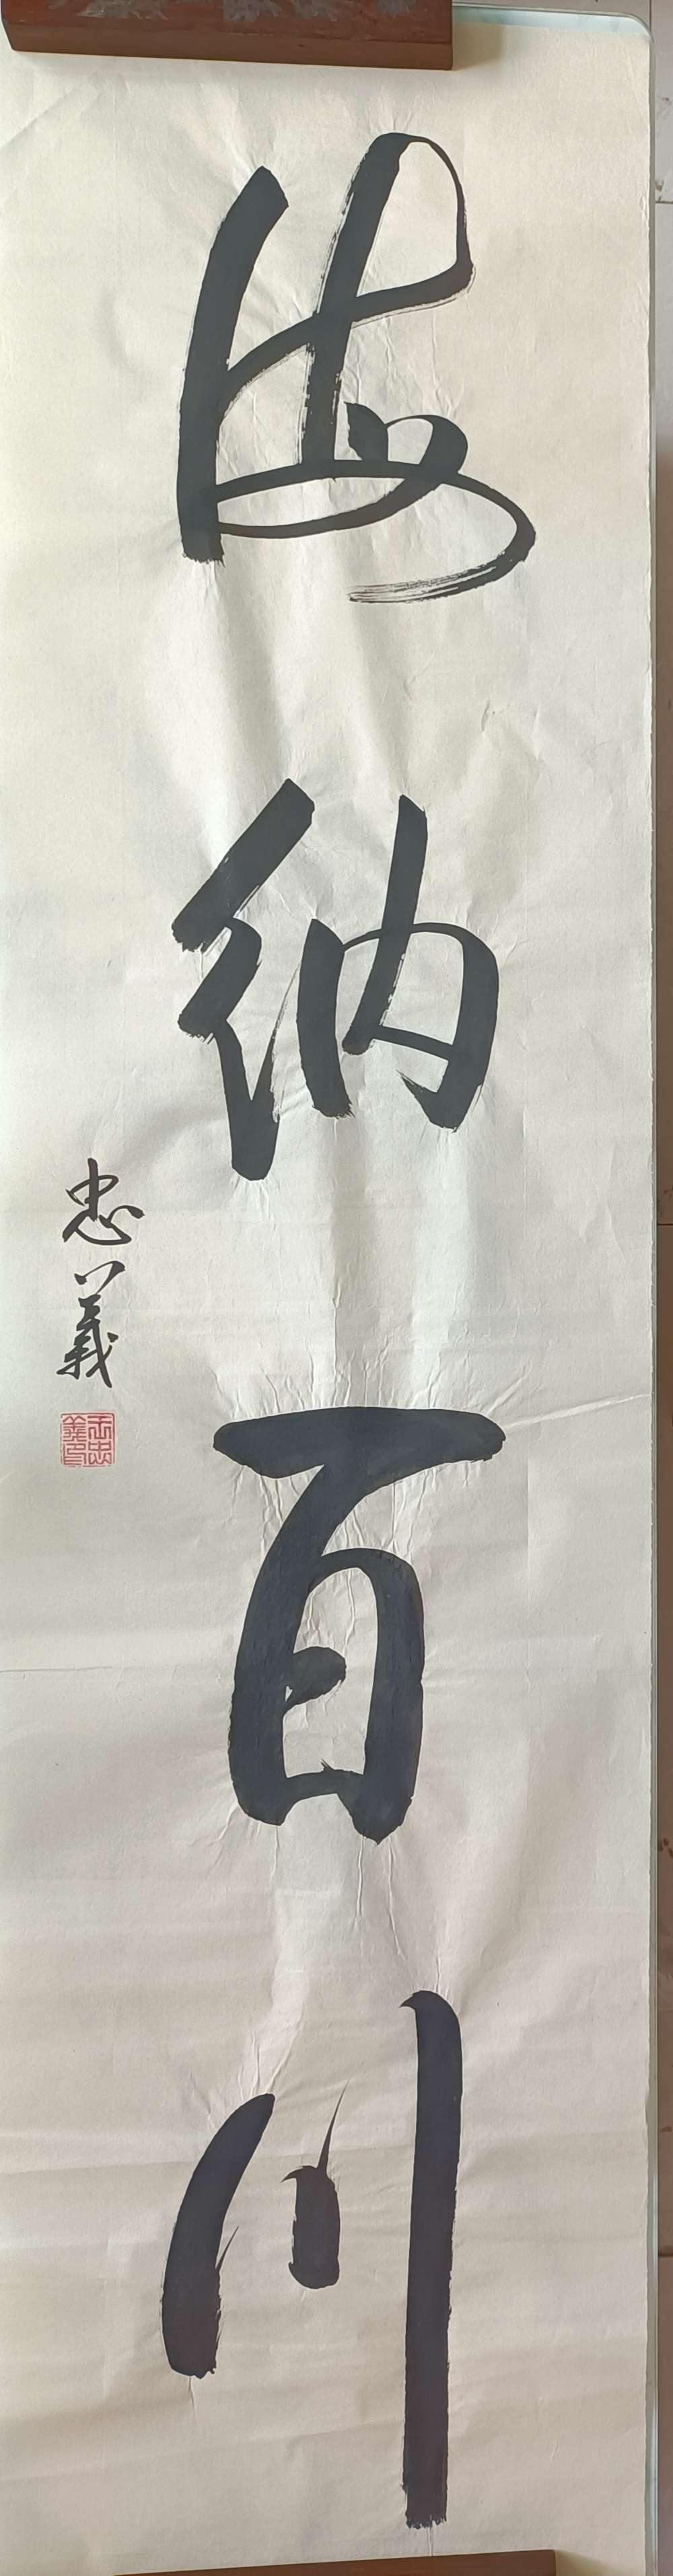 海纳百川
忠義